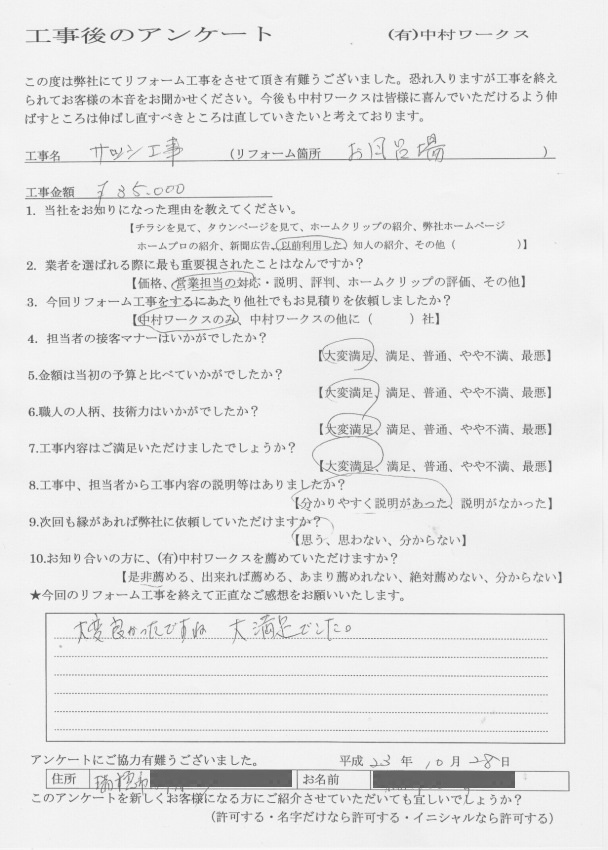 工事後のアンケート (有)中村ワークス
この度は弊社にてリフォーム工事をさせて頂き有難うございました。恐れ入りますが工事を終え
られてお客様の本音をお聞かせください。今後も中村ワークスは皆様に喜んでいただけるよう伸
ばすところは伸ばし直すべきところは直していきたいと考えております。
工事名 サッシ工事 (リフォーム箇所 お風呂場 )
工事金額 ¥35.000
1. 当社をお知りになった理由を教えてください。
【チラシを見て、タウンページを見て、ホームクリップの紹介、弊社ホームページ
ホームプロの紹介、新聞広告、以前利用した、知人の紹介、その他( )】
2. 業者を選ばれる際に最も重要視されたことはなんですか?
【価格、営業担当の対応・説明、評判、ホームクリップの評価、その他】
3. 今回リフォーム工事をするにあたり他社でもお見積りを依頼しましたか?
【中村ワークスのみ、中村ワークスの他に( )社】
4. 担当者の接客マナーはいかがでしたか?
【大変満足、満足、普通、やや不満、最悪】
5.金額は当初の予算と比べていかがでしたか?
【大変満足、満足、普通、やや不満、最悪】
6.職人の人柄、技術力はいかがでしたか?
【大変満足、満足、普通、やや不満、最悪】
7.工事内容はご満足いただけましたでしょうか?
【大変満足、満足、普通、やや不満、最悪】
8.工事中、担当者から工事内容の説明等はありましたか?
【分かりやすく説明があった、説明がなかった】
9.次回も縁があれば弊社に依頼していただけますか?
【思う、思わない、分からない】
10.お知り合いの方に、(有)中村ワークスを薦めていただけますか?
【是非薦める、出来れば薦める、あまり薦めれない、絶対薦めない、分からない】
★今回のリフォーム工事を終えて正直なご感想をお願いいたします。
大変良かったですね 大満足でした。
アンケートにご協力有難うございました。 平成 23 年 10 月 28 日
住所 瑞穂市 お名前
このアンケートを新しくお客様になる方にご紹介させていただいても宜しいでしょうか?
(許可する・名字だけなら許可する・イニシャルなら許可する)